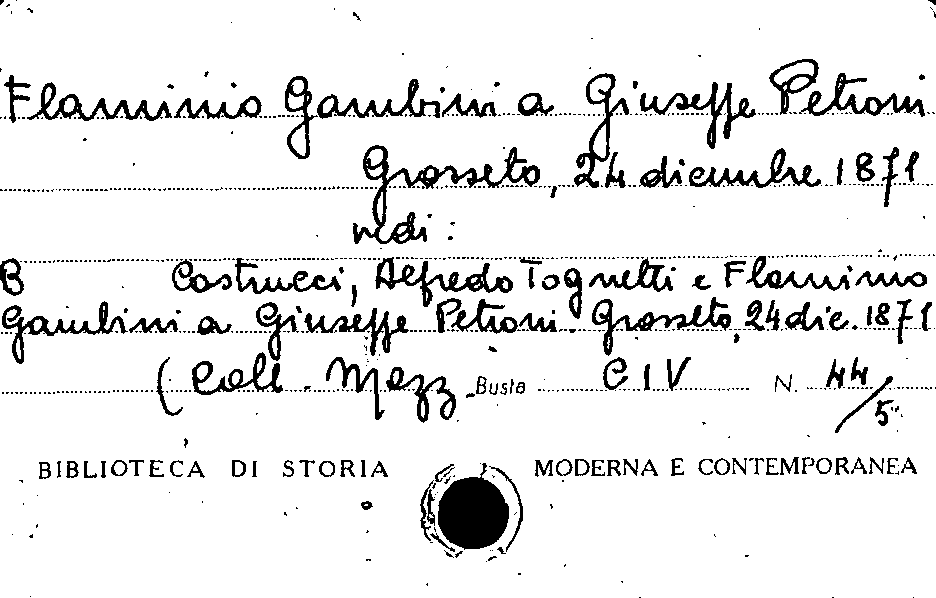 Flaminio Gambini a Giuseppe Petroni
Grosseto, 24 dicembre 1871
vedi:
B Castrucci, Alfredo Tognetti e Flaminio
Gambini a Giuseppe Petroni. Grosseto, 24 dic. 1871
(Coll. Mazz. Busta CIV N. 44/5
BIBLIOTECA DI STORIA MODERNA E CONTEMPORANEA